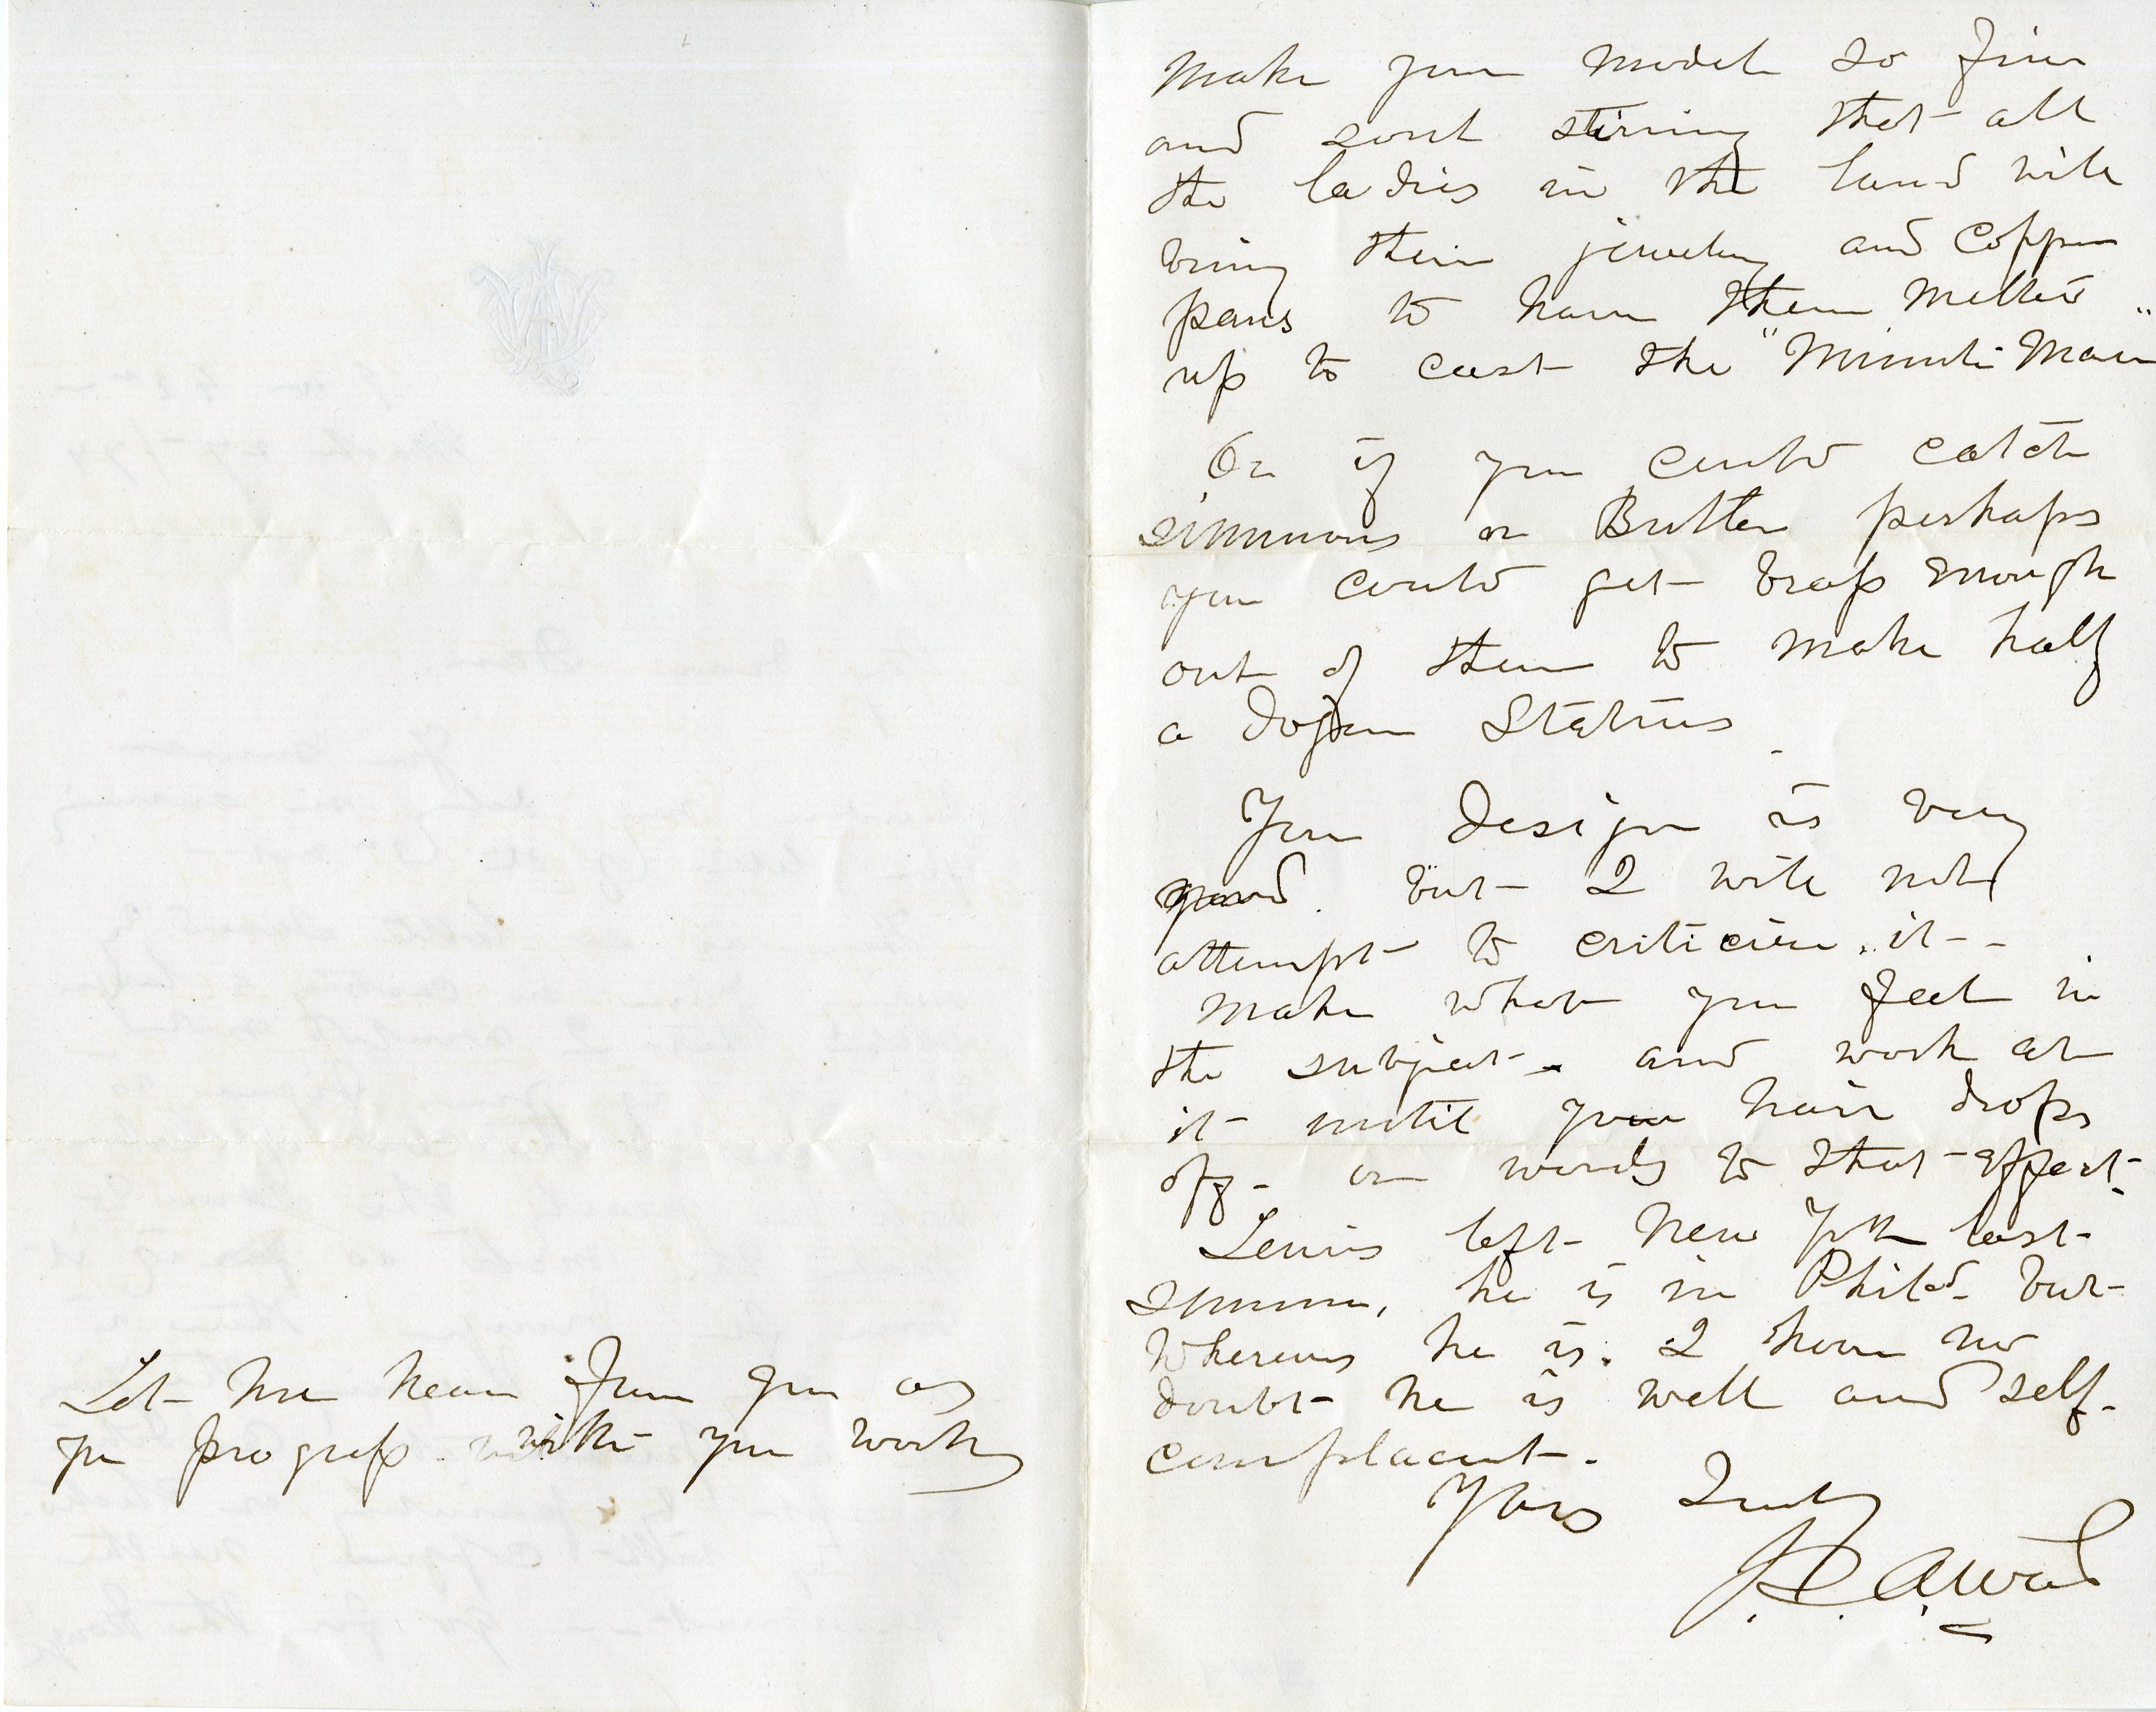 Make your model so fine
and soul stirring that all
the ladies in the land will
bring their jewelry and copper
pans to have them melted
up to cast the "Minute Man"
Or if you could catch
Simmons or Butler perhaps
you could get brass enough
out of them to make half
a dozen Statues.
Your design is very
good. but I will not
attempt to criticise it -
Make what you feel in
the subject - and work at
it until your hair drops
off - or words to that effect -
Lewis left New York last
summer, he is in Phila. but
wherever he is. I have no
doubt he is well and self-
complacent.
Yours Truly
J. Q. A. Ward
Let me hear from you as
you progress with your work